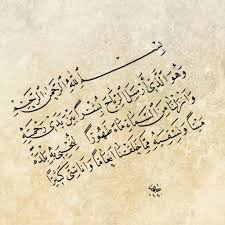 بِسْمِ اللَّهِ الرَّحْمَٰنِ الرَّحِيمِ
وَهُوَ الَّذِي أَرْسَلَ الرِّيَاحَ بُشْرًا بَيْنَ يَدَيْ رَحْمَتِهِ
وَأَنْزَلْنَا مِنَ السَّمَاءِ مَاءً طَهُورًا لِنُحْيِيَ بِهِ بَلْدَةً
مَيْتًا وَنُسْقِيَهُ مِمَّا خَلَقْنَا أَنْعَامًا وَأَنَاسِيَّ كَثِيرًا